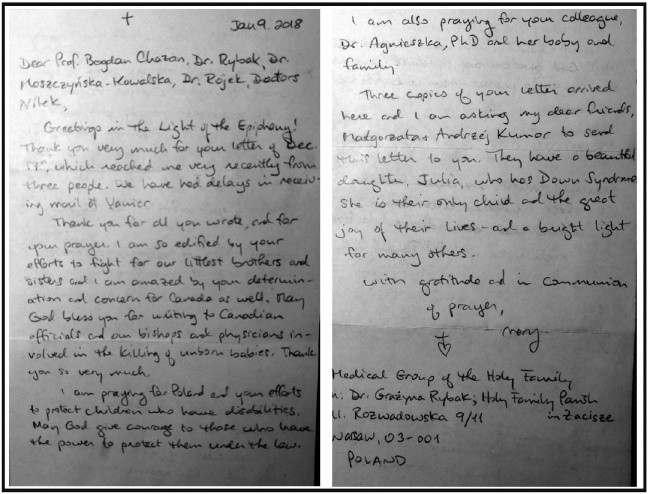 †
Jan 9. 2018
Dear Prof. Bogdan Chazan, Dr. Rybak, Dr.
Moszczyńska-Kowalska, Dr. Rojek, Doctors
Nilek,
Greetings in the Light of the Epiphany!
Thank you very much for your letter of Dec.
which reached me very recently from
three people. We have had delays in receiv-
ing mail at Vanier.
Thank you for all you wrote, and for
your prayer. I am so edified by your
efforts to fight for our littlest brothers and
sisters and I am amazed by your determin-
ation and concern for Canada as well. May
God bless you for writing to Canadian
officials and our bishops and physicians in-
volved in the killing of unborn babies. Thank
you so very much.
I am praying for Poland and your efforts
to protect children who have disabilities.
May God give courage to those who have
the power to protect them under the law.
I am also praying for your colleague,
Dr. Agnieszka, PhD and her baby and
family.
Three copies of your letter arrived
here and I am asking my dear friends,
Małgorzata + Andrzej Kumor to send
this letter to you. They have a beautiful
daughter, Julia, who has Down Syndrome
She is their only child and the great
joy of their lives - and a bright light
for many others.
With gratitude and in communion
of prayer,
mary
Medical Group of the Holy Family
Dr. Grażyna Rybak; Holy Family Parish
Ul. Rozwadowska 9/11 in Zacisze
Warsaw, 03-001
POLAND